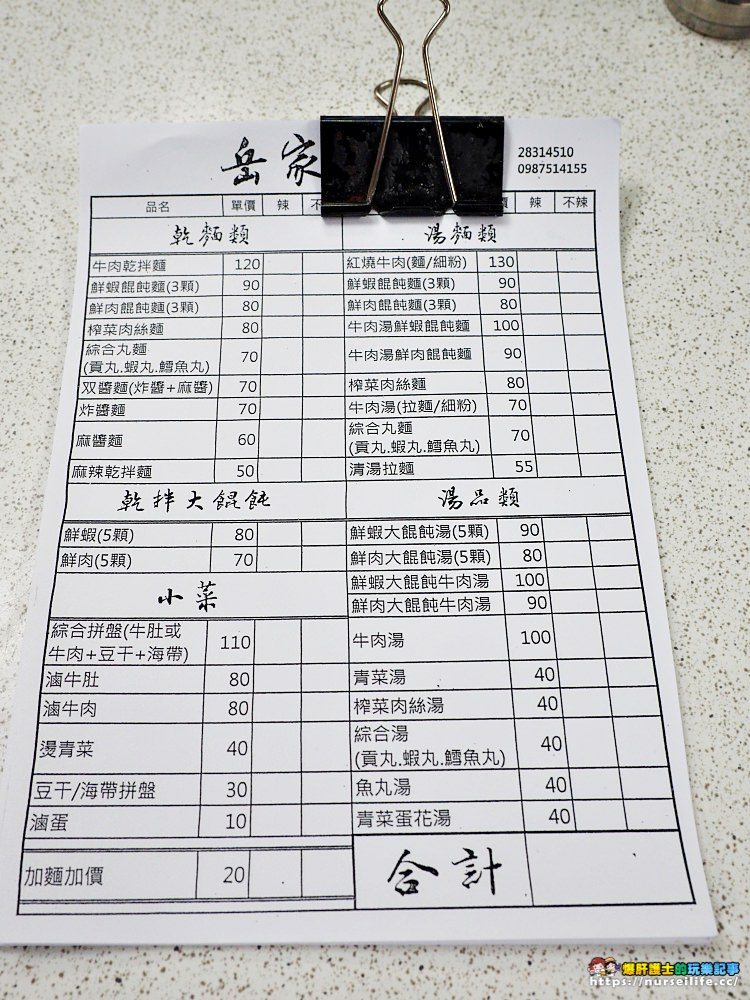 岳家
28314510
0987514155
品名 單價 辣 不
價 辣 不辣
乾麵類
牛肉乾拌麵 120
鮮蝦餛飩麵(3顆) 90
鮮肉餛飩麵(3顆) 80
榨菜肉絲麵 80
綜合丸麵
(貢丸.蝦丸.鱈魚丸) 70
双醬麵(炸醬+麻醬) 70
炸醬麵 70
麻醬麵 60
麻辣乾拌麵 50
乾拌大餛飩
鮮蝦(5顆) 80
鮮肉(5顆) 70
小菜
綜合拼盤(牛肚或
牛肉+豆干+海帶) 110
滷牛肚 80
滷牛肉 80
燙青菜 40
豆干/海帶拼盤 30
滷蛋 10
加麵加價 20
湯麵類
紅燒牛肉(麵/細粉) 130
鮮蝦餛飩麵(3顆) 90
鮮肉餛飩麵(3顆) 80
牛肉湯鮮蝦餛飩麵 100
牛肉湯鮮肉餛飩麵 90
榨菜肉絲麵 80
牛肉湯(拉麵/細粉) 70
綜合丸麵
(貢丸.蝦丸.鱈魚丸) 70
清湯拉麵 55
湯品類
鮮蝦大餛飩湯(5顆) 90
鮮肉大餛飩湯(5顆) 80
鮮蝦大餛飩牛肉湯 100
鮮肉大餛飩牛肉湯 90
牛肉湯 100
青菜湯 40
榨菜肉絲湯 40
綜合湯
(貢丸.蝦丸.鱈魚丸) 40
魚丸湯 40
青菜蛋花湯 40
合計
爆肝護士的玩樂記事
https://nurseilife.cc/